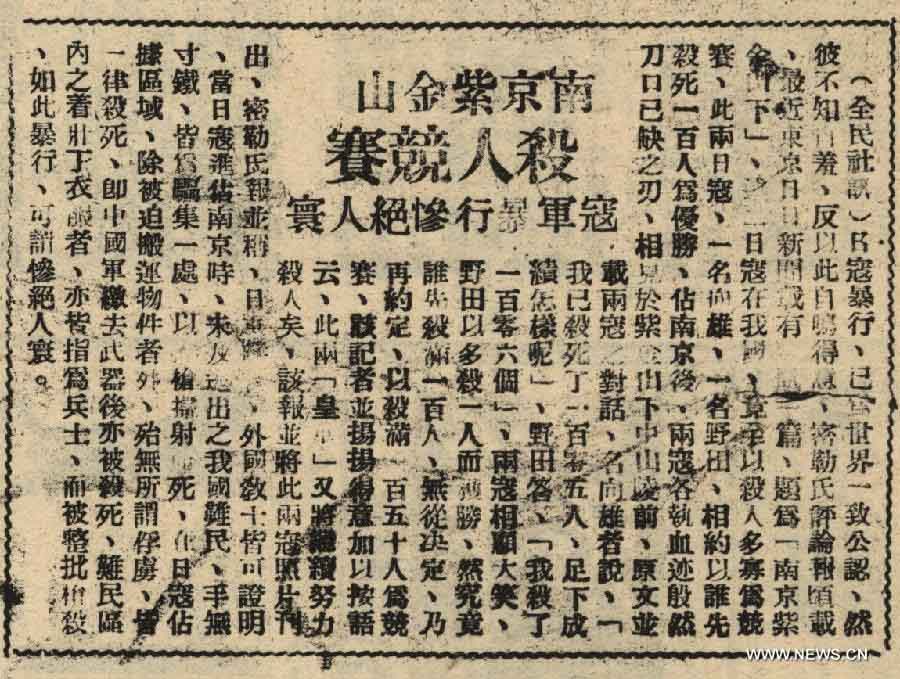 南京紫金山
殺人競賽
寇軍暴行慘絕人寰
（全民社訊）日寇暴行、已為世界一致公認、然
彼不知自羞、反以此自鳴得意、密勒氏評論報頃載
、最近東京日日新聞載有一篇、題爲「南京紫
金山下」、二日寇在我國、竟至以殺人多寡爲競
賽、此兩日寇、一名向雄、一名野田、相約以誰先
殺死一百人爲優勝、佔南京後、兩寇各執血迹殷然
刀口已缺之刃、相見於紫金山下中山陵前、原文並
載兩寇之對話、名向雄者說、「
我已殺死了一百零五人、足下成
績怎樣呢」、野田答、「我殺了
一百零六個」、兩寇相顧大笑、
野田以多殺一人而獲勝、然究竟
誰先殺滿一百人、無從決定、乃
再約定、以殺滿一百五十人爲競
賽、該記者並揚揚得意加以按語
云、此兩「皇軍」又將繼續努力
殺人矣、該報並將此兩寇照片刊
出、密勒氏報並稱、日軍、外國教士皆可證明
、當日寇進佔南京時、未及逃出之我國難民、手無
寸鐵、皆爲驅集一處、以槍掃射死、在日寇佔
據區域、除被迫搬運物件者外、殆無所謂俘虜、皆
一律殺死、卽中國軍繳去武器後亦被殺死、難民區
內之着壯丁衣服者、亦皆指爲兵士、而被整批槍殺
、如此暴行、可謂慘絕人寰。
WWW.NEWS.CN